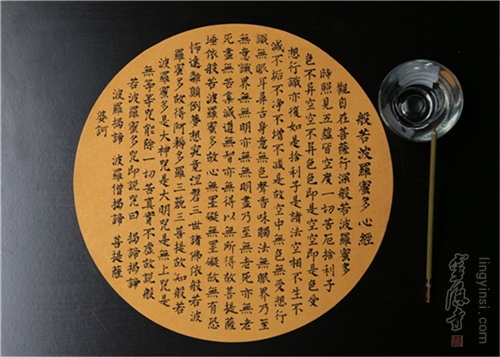 般若波羅蜜多心經
觀自在菩薩行深般若波羅蜜多
時照見五蘊皆空度一切苦厄捨利子
色不異空空不異色色即是空空即是色受
想行識亦復如是捨利子是諸法空相不生不
滅不垢不淨不增不減是故空中無色無受想行
識無眼耳鼻舌身意無色聲香味觸法無眼界乃至
無意識界無無明亦無無明盡乃至無老死亦無老
死盡無苦集滅道無智亦無得以無所得故菩提薩
埵依般若波羅蜜多故心無罣礙無罣礙故無有恐
怖遠離顛倒夢想究竟涅槃三世諸佛依般若波
羅蜜多故得阿耨多羅三藐三菩提故知般若
波羅蜜多是大神咒是大明咒是無上咒是
無等等咒能除一切苦真實不虛故說般
若波羅蜜多咒即說咒曰 揭諦揭諦
波羅揭諦 波羅僧揭諦 菩提薩
婆訶
靈隱寺
lingyinsi.com